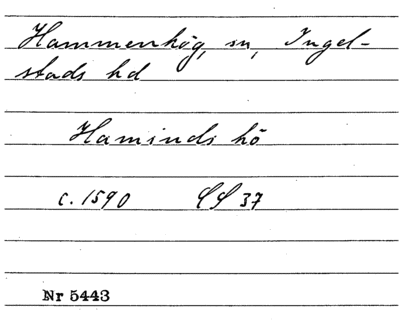 Hammenhög, sn, Ingel-
stads hd
Haminds hö
c. 1590 SS 37
Nr 5443